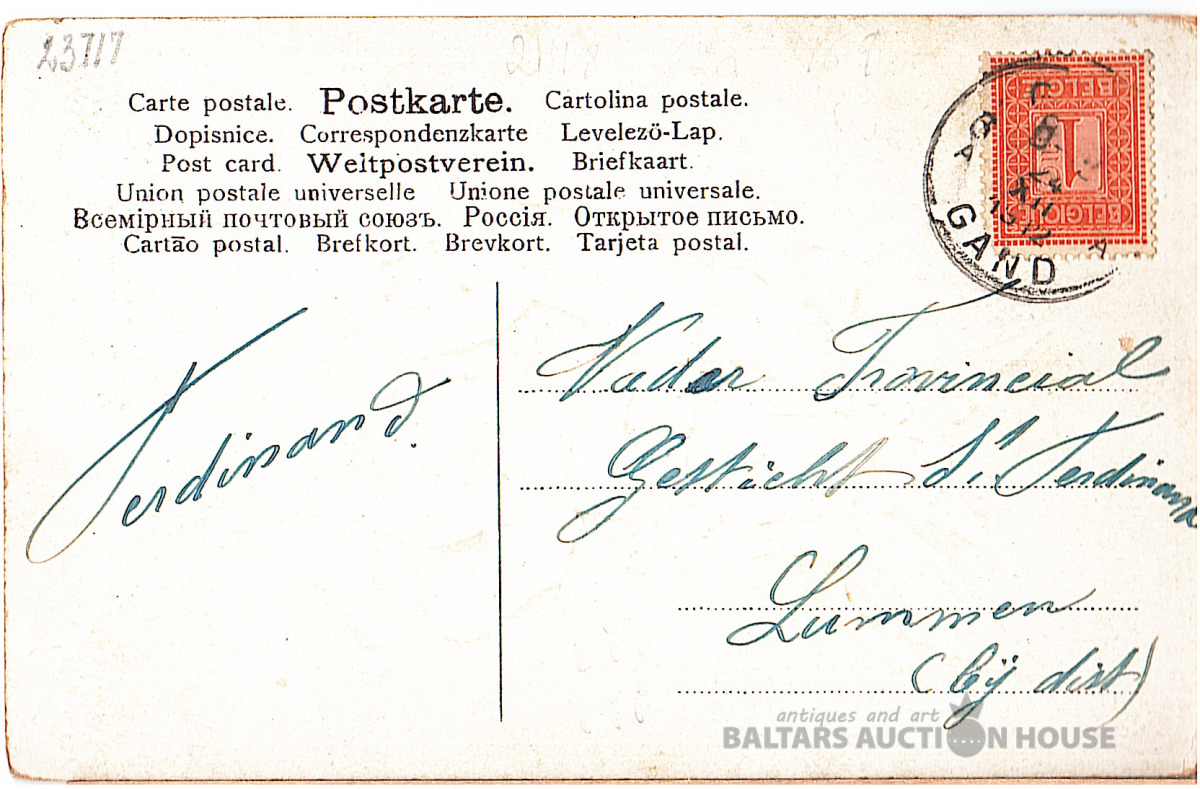 23717
Carte postale. Postkarte. Cartolina postale.
Dopisnice. Correspondenzkarte Levelező-Lap.
Post card. Weltpostverein. Briefkaart.
Union postale universelle Unione postale universale.
Всемірный почтовый союзъ. Россія. Открытое письмо.
Cartão postal. Brefkort. Brevkort. Tarjeta postal.
BELGIË
1
BELGIQUE
GAND
XII
1912
Ferdinand.
Vader Provincial
Gesticht St. Ferdinand
Lummen
(bij dist)
antiques and art
BALTARS AUCTION HOUSE